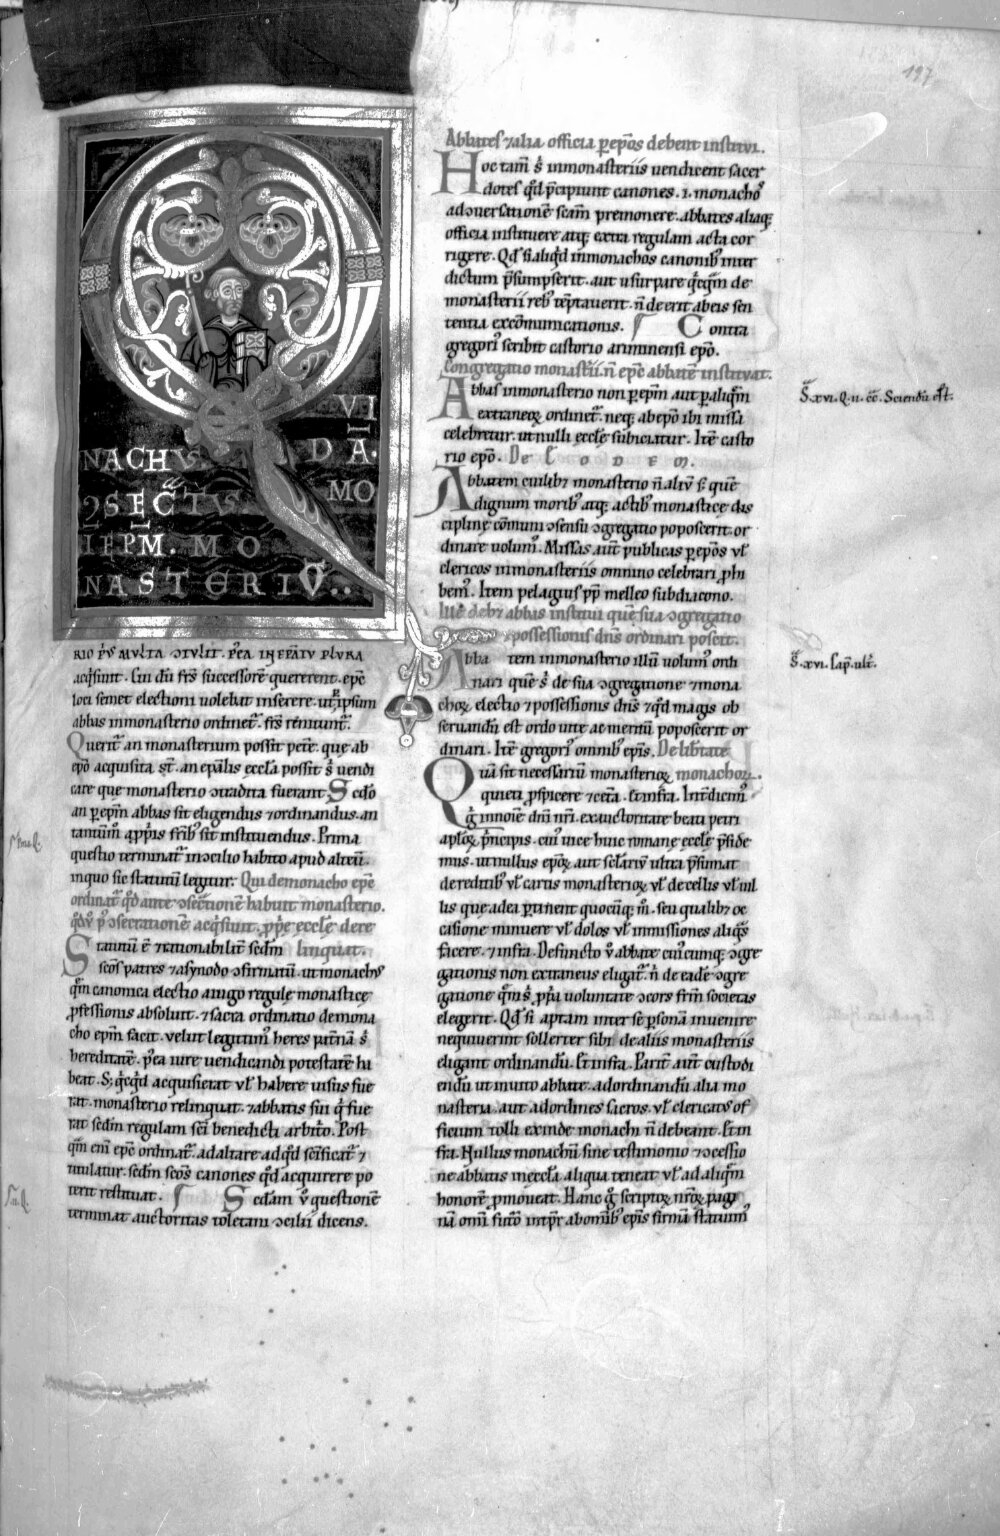 197
QVI
DA.
MO
NACHVS
ꝛSEC̄TVS
IEPM. MO
NASTERIV̄..
RIO P᷒VS MVLTA ↄTVLIT. P̄EA IN EP̄ATV PLVRA
acq̇siuit. Cui dū fr̄s successorē quererent. ep̄c
loci semet electioni uolebat inserere. ut p̱ ipsum
abbas inmonasterio ordinet᷑. fr̄s renuunt᷑.
Querit᷑ an monasterium possit petē. que ab
ep̄o acquisita st̄. an ep̄alis eccła possit ṡ uendi
care que monasterio ↄtradita fuerant. Scdo
an ꝑ ep̄m abbas sit eligendus ⁊ordinandus. an
tantum᷒ a ꝓp̄is fr̄ib᷒ sit instituendus. Prima
questio terminat᷑ inↄcilio habito apud alteū.
inquo sic statutū legitur. Qui demonacho ep̄c
ordinat᷑ q̇d ante ↄsec̄tionē habuit monasterio.
q̇d v̊ p᷒ ↄsecrationē acq̇siuit. ꝓp̄e eccłe dere
Statutū ē ⁊rationabilit᷑ sed̄m linquat.
sc̄os patres ⁊asynodo ↄfirmatū. ut monach᷒
q̄m canonica electio aiugo regule monastice
ꝓfessionis absoluit. ⁊sacra ordinatio demona
cho ep̄m facit. uelut legitim᷒ heres pat̄nā ṡ
hereditatē. p̄ea iure uendicandi potestatē ha
beat. S; q̇cq̇d acquisierat vł habere uisus fue
rat. monasterio relinquat. ⁊abbatis sui q̇ fue
rat sed̄m regulam sc̄i benedicti arbit̄o. Post
q̄m eni ep̄c ordinat᷑. ad altare adq̇d sc̄ificat᷑ ⁊
titulatur. sed̄m sc̄os canones q̇d acquirere po
terit restituat. Sedam v̊ questionē
terminat auctoritas toletani ↄcilii dicens.
Abbates ⁊alia officia ꝑ ep̄os debent institui.
Hoc tam̄ ṡ inmonasteriis uendicent sacer
dotes q̇d p̄cipiunt canones. i. monacho᷒
ad ↄuersationē sc̄am premonere. abbates aliaq;
officia instituere atq; extra regulam acta cor
rigere. Qd̄ si aliq̇d inmonachos canonib᷒ inter
dictum p̄sumpserit. aut usurpare q̇cq̄m de
monasterii reb᷒ tēptauerit. n̄ deerit abeis sen
tentia excōmunicationis. Contra
gregori᷒ scribit castorio ariminensi ep̄o.
Congregatio monast̄ii. n̄ ep̄c abbatē instituat.
Abbas inmonasterio non ꝑ ep̄m aut ꝑ aliq̄m
extraneoꝝ ordinet᷑. neq; ab ep̄o ibi missa
celebretur. ut nulli eccłe subiciatur. Itē casto
rio ep̄o. De eodem.
Abbatem cuilibꝫ monasterio n̄ aliū s; quē
dignum morib᷒ atq; actib᷒ monastice dis
cipline cōmuni ↄsensu ↄgregatio poposcerit. or
dinare uolum᷒. Missas aut̄ publicas ꝑ ep̄os vł
clericos inmonasteriis omnino celebrari ꝓhi
bem᷒. Item pelagius pp̄ melleo subdiacono.
Ille debꝫ abbas institui quē sua ↄgregatio
⁊possessionis dn̄s ordinari poscit.
Abbatem inmonasterio illū uolum᷒ ordi
nari quē ṡ de sua ↄgregatione ⁊mona
choꝝ electio ⁊possessionis dn̄s ⁊q̇d magis ob
seruandū est ordo uite ac meritū poposcerit or
dinari. Itē gregori᷒ omnib᷒ ep̄is. De lib̄tate
Quā sit necessariū monasterioꝝ monachoꝝ.
quieti ꝓspicere ⁊ceta. Et infra. Int̄dicim᷒
ġ innoīe dn̄i nr̄i. ex auctoritate beati petri
apłoꝝ p̄ncipis. cui᷒ uice huic romane eccłe p̄side
mus. ut nullus ep̄oꝝ aut sclariū ultra p̄sumat
de reditib᷒ vł cartis monasterioꝝ vł de cellis vł uil
lis que adea ꝑtinent quocūq; m̊. seu qualibꝫ oc
casione minuere vł dolos vł inmissiones aliq̄s
facere. ⁊infra. Defuncto v̊ abbate cui᷒cumq; ↄgre
gationis non extraneus eligat᷑. n̄ de eadē ↄgre
gatione q̄m ṡ ꝓpia uoluntate ↄcors fr̄m societas
elegerit. Qd̄ si aptam inter se ꝑsonā inuenire
nequiuerint sollerter sibi de aliis monasteriis
eligant ordinandū. Et infra. Parit᷑ aut̄ custodi
endū ut inuito abbate. adordinandū alia mo
nasteria. aut adordines sacros. vł clericat᷒ of
ficium tolli exinde monachi n̄ debeant. Et in
fra. Nullus monachū sine testimonio ⁊ↄcessio
ne abbatis ineccła aliqua teneat vł ad aliq̄m
honorē ꝓmoueat. Hanc ġ scriptoꝝ nr̄oꝝ pagi
nā omī futo int̄pr abomib᷒ ep̄is firmā statuim᷒
S̄. xvi. Q. ii. cō. Sciendū est.
S̄. xvi. Cap̄. ult̄.